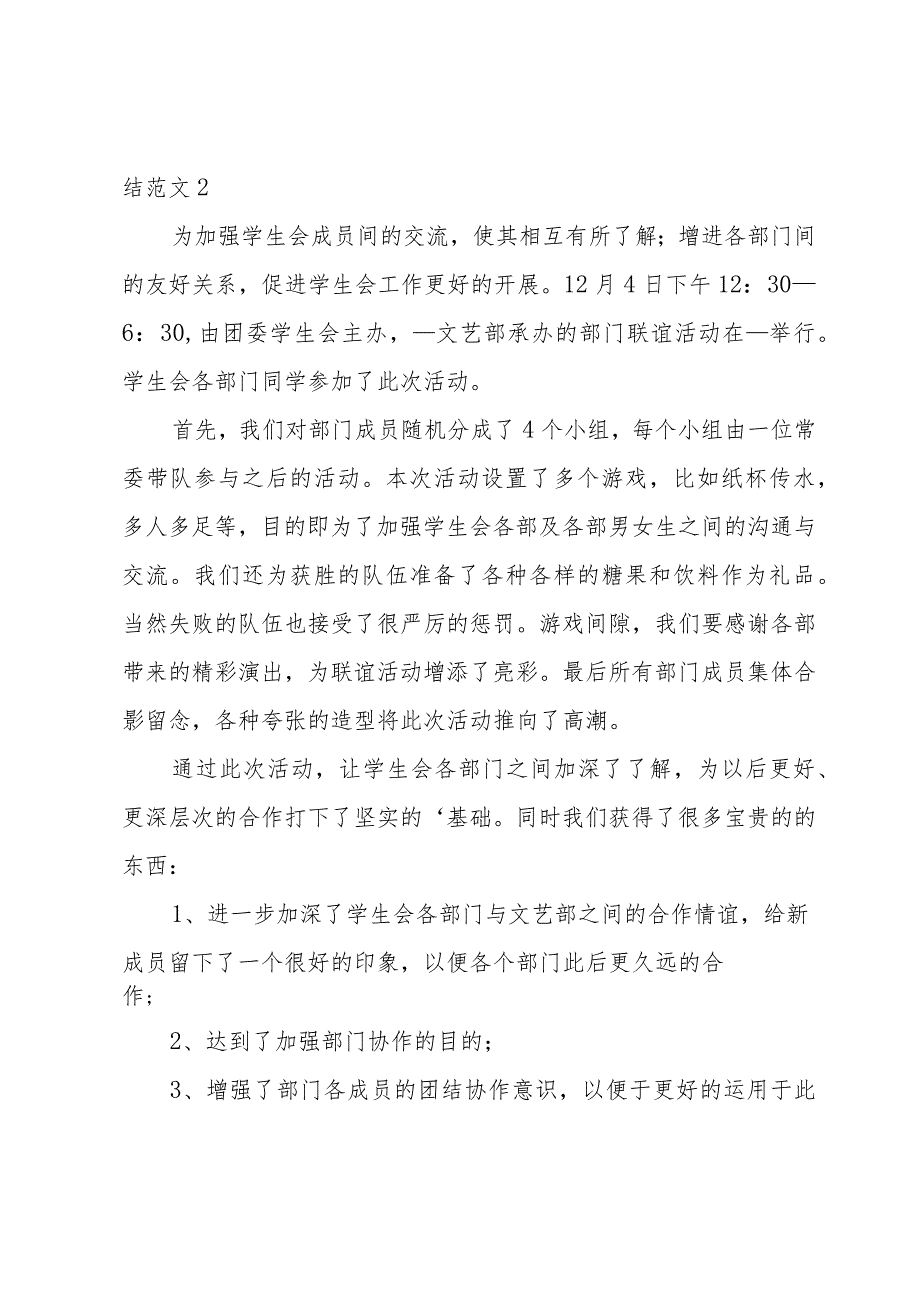 结范文2
为加强学生会成员间的交流，使其相互有所了解；增进各部门间
的友好关系，促进学生会工作更好的开展。12月4日下午12：30—
6：30,由团委学生会主办，—文艺部承办的部门联谊活动在—举行。
学生会各部门同学参加了此次活动。
首先，我们对部门成员随机分成了4个小组，每个小组由一位常
委带队参与之后的活动。本次活动设置了多个游戏，比如纸杯传水，
多人多足等，目的即为了加强学生会各部及各部男女生之间的沟通与
交流。我们还为获胜的队伍准备了各种各样的糖果和饮料作为礼品。
当然失败的队伍也接受了很严厉的惩罚。游戏间隙，我们要感谢各部
带来的精彩演出，为联谊活动增添了亮彩。最后所有部门成员集体合
影留念，各种夸张的造型将此次活动推向了高潮。
通过此次活动，让学生会各部门之间加深了了解，为以后更好、
更深层次的合作打下了坚实的‘基础。同时我们获得了很多宝贵的的
东西：
1、进一步加深了学生会各部门与文艺部之间的合作情谊，给新
成员留下了一个很好的印象，以便各个部门此后更久远的合
作;
2、达到了加强部门协作的目的；
3、增强了部门各成员的团结协作意识，以便于更好的运用于此